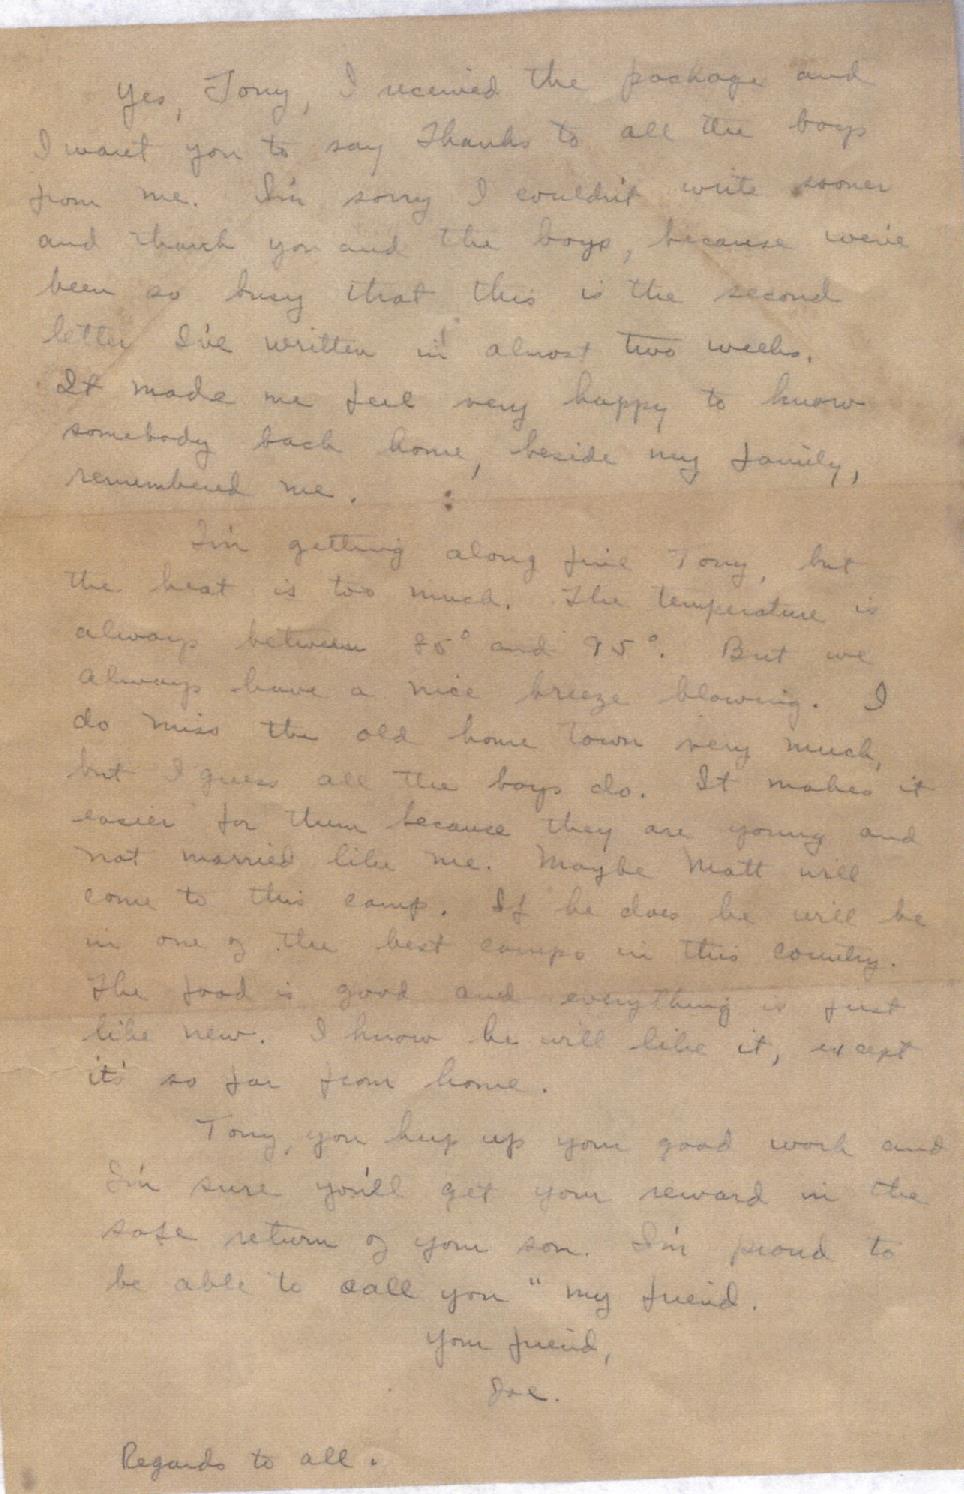 Yes, Tony, I received the package and
I want you to say Thanks to all the boys
from me. I'm sorry I couldn't write sooner
and thank you and the boys, because we've
been so busy that this is the second
letter I've written in almost two weeks.
It made me feel very happy to know
somebody back home, beside my family,
remembered me.
I'm getting along fine Tony, but
the heat is too much. The temperature is
always between 85° and 95°. But we
always have a nice breeze blowing. I
do miss the old home town very much,
but I guess all the boys do. It makes it
easier for them because they are young and
not married like me. Maybe Matt will
come to this camp. If he does he will be
in one of the best camps in this country.
The food is good and everything is just
like new. I know he will like it, except
it's so far from home.
Tony, you keep up your good work and
I'm sure you'll get your reward in the
safe return of your son. I'm proud to
be able to call you " my friend.
Your friend,
Joe.
Regards to all.